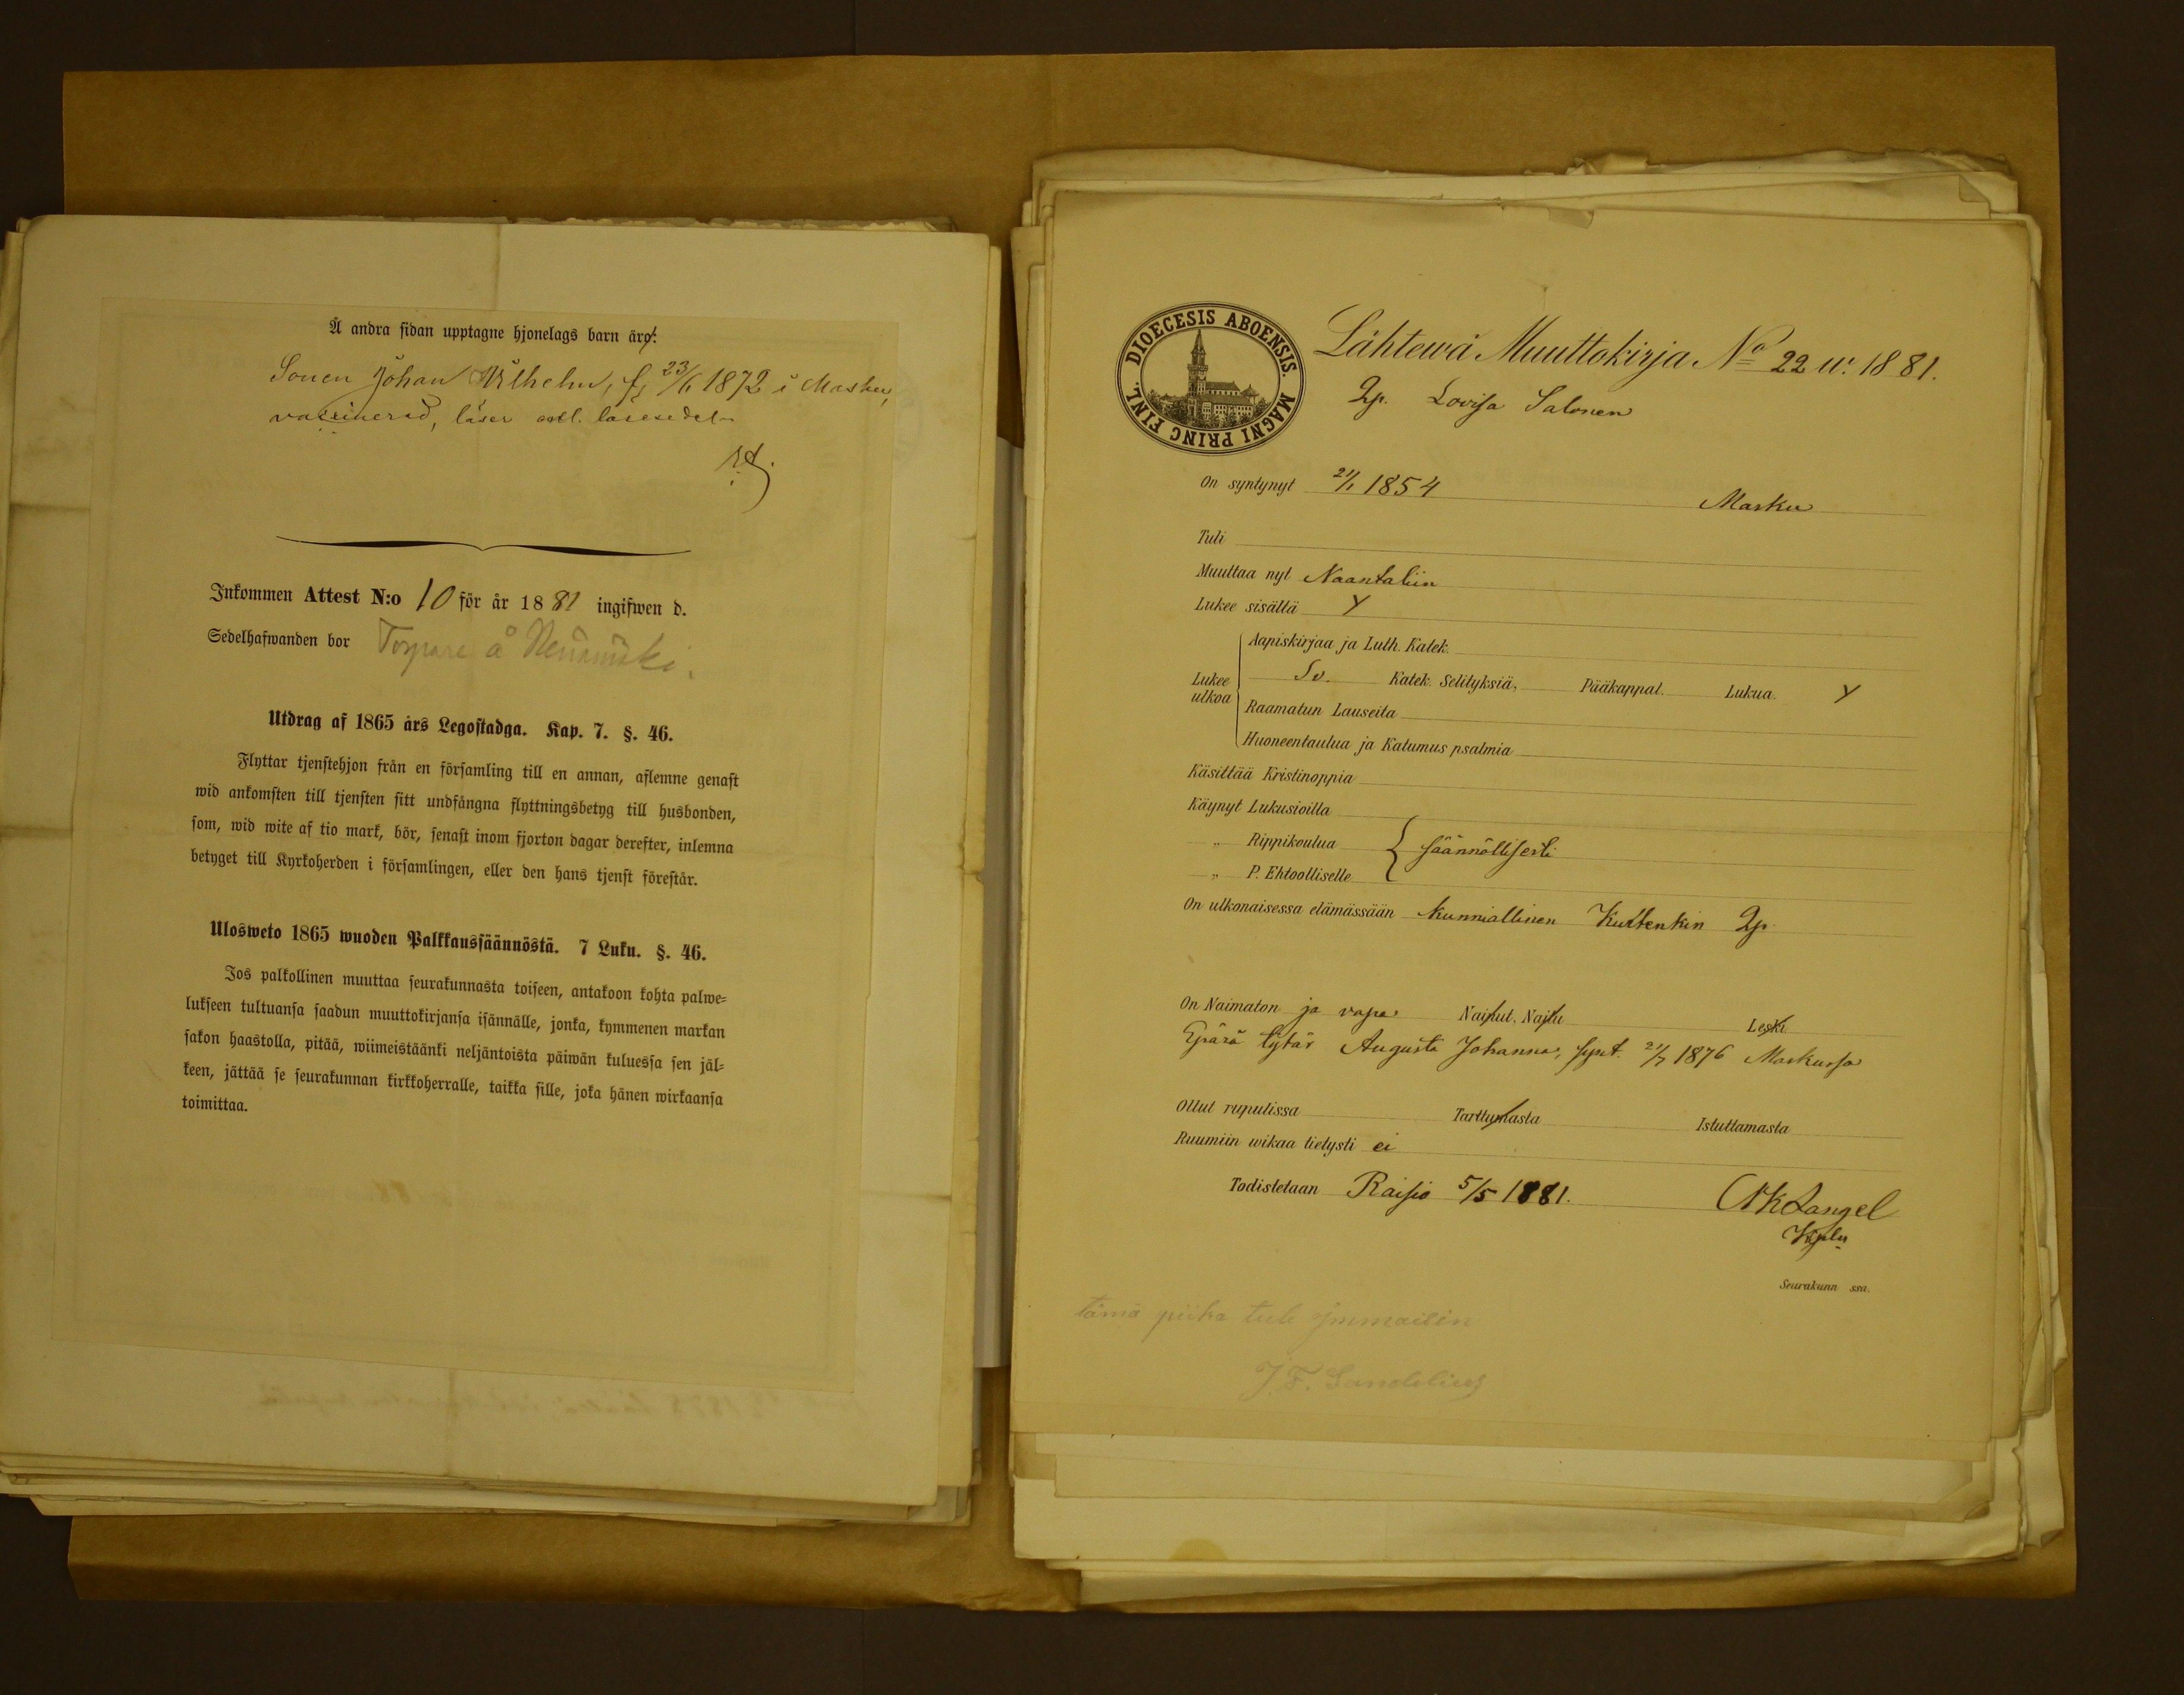 Å andra sidan upptagne hjonelags barn äro:
Sonen Johan Wilhelm, f. 23/6 1872 i Masku,
vaccinerad, läser enl. läsesedel
Inkommen Attest N:o 10 för år 1881 ingifwen d.
Sedelhafwanden bor Torpare å Nenämäki.
Utdrag af 1865 års Legostadga. Kap. 7. §. 46.
Flyttar tjenstehjon från en församling till en annan, aflemne genast
wid ankomsten till tjensten sitt undfångna flyttningsbetyg till husbonden,
som, wid wite af tio mark, bör, senast inom fjorton dagar derefter, inlemna
betyget till Kyrkoherden i församlingen, eller den hans tjenst förestår.
Ulosweto 1865 wuoden Palkkaussäännöstä. 7 Luku. §. 46.
Jos palkollinen muuttaa seurakunnasta toiseen, antakoon kohta palwe=
lukseen tultuansa saadun muuttokirjansa isännälle, jonka, kymmenen markan
sakon haastolla, pitää, wiimeistäänki neljäntoista päiwän kuluessa sen jäl=
keen, jättää se seurakunnan kirkkoherralle, taikka sille, joka hänen wirkaansa
toimittaa.
DIOECESIS ABOENSIS. MAGNI PRINC FINL.
Lähtewä Muuttokirja No 22 w. 1881.
Qp. Lovisa Salonen
On syntynyt 21/1 1854 Masku
Tuli
Muuttaa nyt Naantaliin
Lukee sisältä Y
Aapiskirjaa ja Luth. Katek.
Lukee ulkoa Sv. Katek. Selityksiä, Pääkappal. Lukua. Y
Raamatun Lauseita
Huoneentaulua ja Katumus psalmia
Käsittää Kristinoppia
Käynyt Lukusioilla
„ Rippikoulua säännöllisesti
„ P. Ehtoolliselle
On ulkonaisessa elämässään kunniallinen Kuitenkin Qp.
On Naimaton ja vapa Nainut, Naitu Leski
Epärä tytär Augusta Johanna, synt. 21/7 1876 Maskussa
Ollut rupulissa Tarttumasta Istuttamasta
Ruumiin wikaa tietysti ei
Todistetaan Raisio 5/5 1881. NKLangel
Kpln
Seurakunn ssa.
tämä piika tule Immaisin
J. F. Sandelius